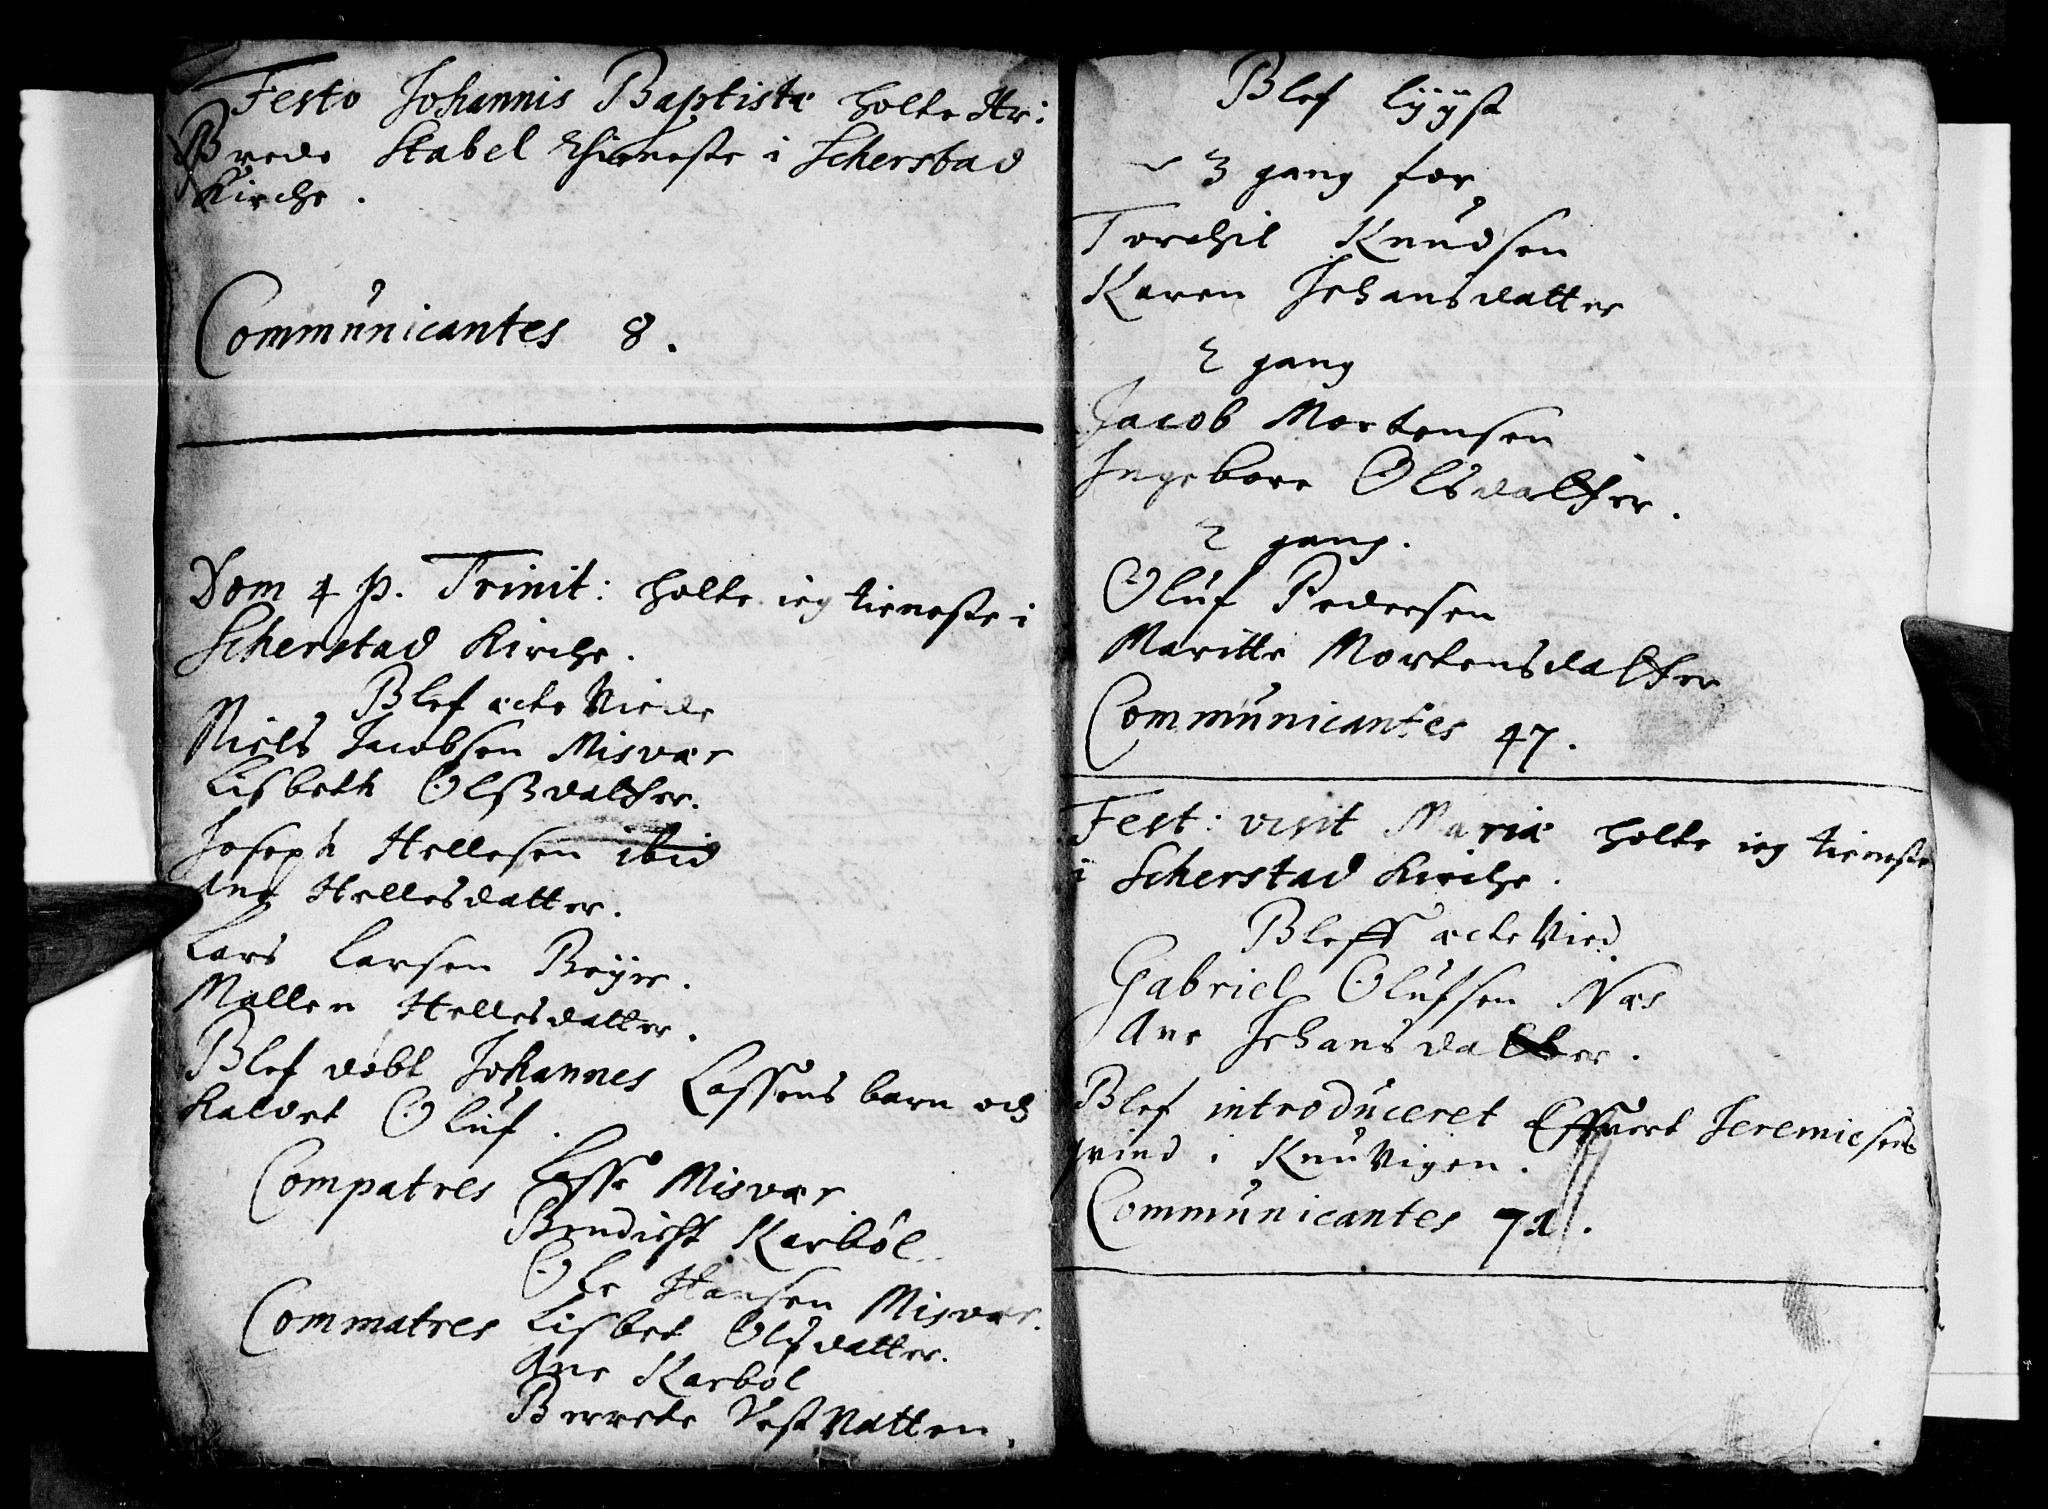 Festo Johannis Baptistæ holte Hr:
Brede Stabel thieneste i Scherstad
Kirche.
Communicantes 8.
Dom 4 p. Trinit: holte ieg tieneste i
Scherstad Kirche.
Blef ecte Viede
Niels Jacobsen Misvær
Lisbeth Olsdatter.
Joseph Hellesen ibid
Ane Hellesdatter.
Lars Larsen Beyer.
Mallen Hellesdatter.
Blef døbt Johannes Lassens barn och
kaldet Oluf.
Compatres Lasse Misvær
Bendicht Karbøl
Ole Hansen Misvær.
Commatres Lisbet Olsdatter.
Ane Karbøl
Berrete Vestvatten.
Blef lÿÿst
3 gang for
Torchil Knudsen
Karen Johansdatter
2 gang
Jacob Mortensen
Ingebore Olsdatter.
2 gang.
Oluf Pedersen
Maritte Mortensdatter
Communicantes 47.
Fest: visit Mariæ holte ieg tieneste
i Scherstad Kirche.
Bleff ecte Vied
Gabriel Olufsen Næs
Ane Johansdatter.
Blef introduceret Effvert Jeremiesens
qvind i Knuvigen.
Communicantes 71.